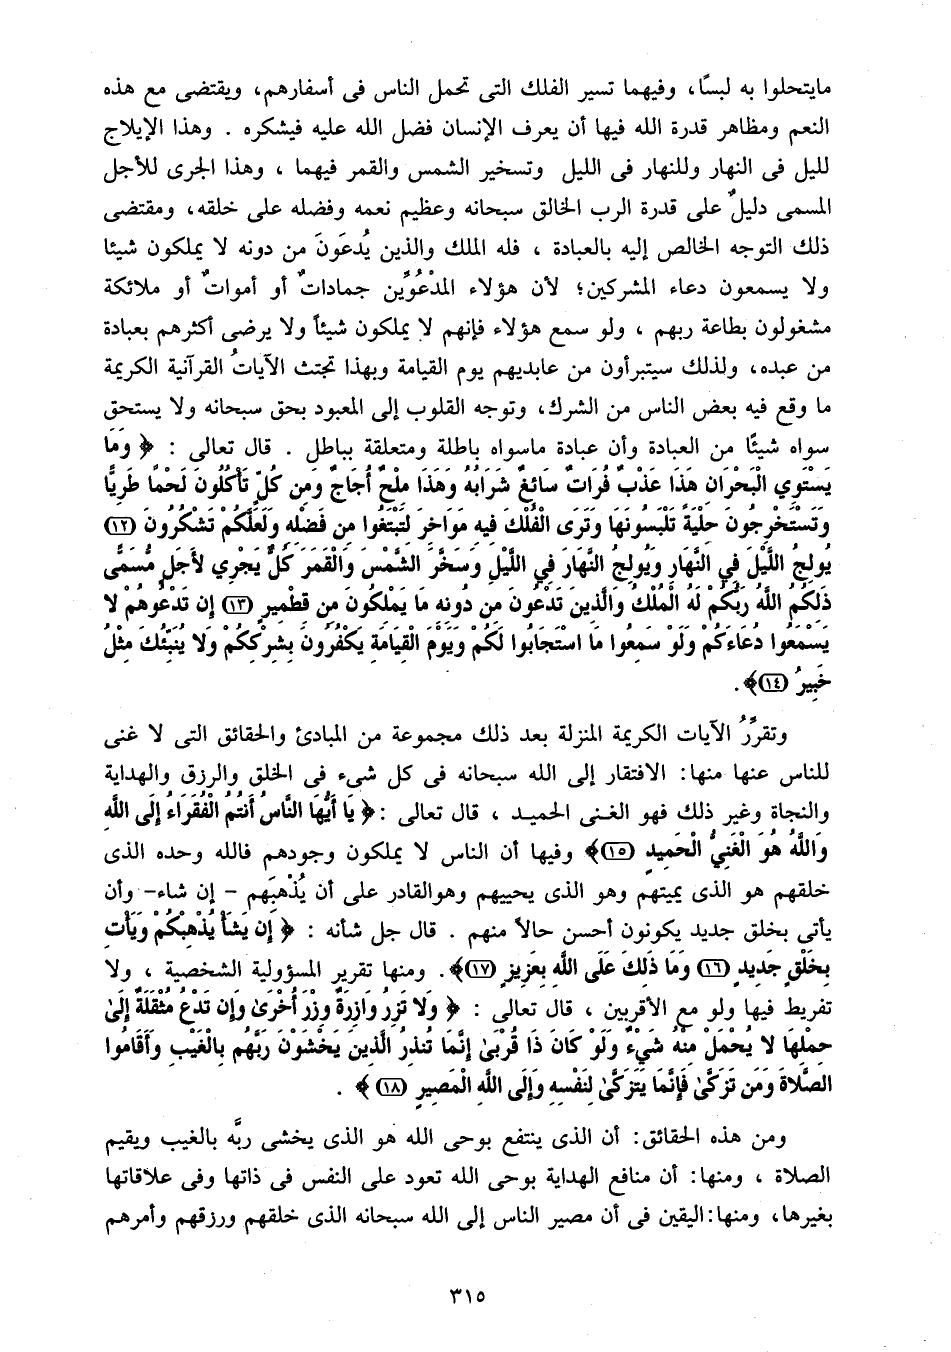 مايتحلوا به لبسًا، وفيهما تسير الفلك التى تحمل الناس فى أسفارهم، ويقتضى مع هذه
النعم ومظاهر قدرة الله فيها أن يعرف الإنسان فضل الله عليه فيشكره . وهذا الإيلاج
لليل فى النهار وللنهار فى الليل وتسخير الشمس والقمر فيهما ، وهذا الجرى للأجل
المسمى دليلٌ على قدرة الرب الخالق سبحانه وعظيم نعمه وفضله على خلقه، ومقتضى
ذلك التوجه الخالص إليه بالعبادة ، فله الملك والذين يُدعَونَ من دونه لا يملكون شيئا
ولا يسمعون دعاء المشركين؛ لأن هؤلاء المدْعُوِّين جماداتٌ أو أمواتٌ أو ملائكة
مشغولون بطاعة ربهم ، ولو سمع هؤلاء فإنهم لا يملكون شيئاً ولا يرضى أكثرهم بعبادة
من عبده، ولذلك سيتبرأون من عابديهم يوم القيامة وبهذا تجتث الآياتُ القرآنية الكريمة
ما وقع فيه بعض الناس من الشرك، وتوجه القلوب إلى المعبود بحق سبحانه ولا يستحق
سواه شيئًا من العبادة وأن عبادة ماسواه باطلة ومتعلقة بباطل . قال تعالى : ﴿ وَمَا
يَسْتَوِي الْبَحْرَانِ هَذَا عَذْبٌ فُرَاتٌ سَائِغٌ شَرَابُهُ وَهَذَا مِلْحٌ أُجَاجٌ وَمِن كُلٍّ تَأْكُلُونَ لَحْمًا طَرِيًّا
وَتَسْتَخْرِجُونَ حِلْيَةً تَلْبَسُونَهَا وَتَرَى الْفُلْكَ فِيهِ مَوَاخِرَ لِتَبْتَغُوا مِن فَضْلِهِ وَلَعَلَّكُمْ تَشْكُرُونَ (١٢)
يُولِجُ اللَّيْلَ فِي النَّهَارِ وَيُولِجُ النَّهَارَ فِي اللَّيْلِ وَسَخَّرَ الشَّمْسَ وَالْقَمَرَ كُلٌّ يَجْرِي لأَجَلٍ مُّسَمًّى
ذَلِكُمُ اللَّهُ رَبُّكُمْ لَهُ الْمُلْكُ وَالَّذِينَ تَدْعُونَ مِن دُونِهِ مَا يَمْلِكُونَ مِن قِطْمِيرٍ (١٣) إِن تَدْعُوهُمْ لا
يَسْمَعُوا دُعَاءَكُمْ وَلَوْ سَمِعُوا مَا اسْتَجَابُوا لَكُمْ وَيَوْمَ الْقِيَامَةِ يَكْفُرُونَ بِشِرْكِكُمْ وَلا يُنَبِّئُكَ مِثْلُ
خَبِيرٍ (١٤)﴾.
وتقرِّرُ الآيات الكريمة المنزلة بعد ذلك مجموعة من المبادئ والحقائق التى لا غنى
للناس عنها منها: الافتقار إلى الله سبحانه فى كل شىء فى الخلق والرزق والهداية
والنجاة وغير ذلك فهو الغنى الحميد ، قال تعالى :﴿ يَا أَيُّهَا النَّاسُ أَنتُمُ الْفُقَرَاءُ إِلَى اللَّهِ
وَاللَّهُ هُوَ الْغَنِيُّ الْحَمِيدُ (١٥)﴾ وفيها أن الناس لا يملكون وجودهم فالله وحده الذى
خلقهم هو الذى يميتهم وهو الذى يحييهم وهوالقادر على أن يُذْهبَهم - إن شاء- وأن
يأتى بخلق جديد يكونون أحسن حالاً منهم . قال جل شأنه : ﴿ إِن يَشَأْ يُذْهِبْكُمْ وَيَأْتِ
بِخَلْقٍ جَدِيدٍ (١٦) وَمَا ذَلِكَ عَلَى اللَّهِ بِعَزِيزٍ (١٧)﴾. ومنها تقرير المسؤولية الشخصية ، ولا
تفريط فيها ولو مع الأقربين ، قال تعالى : ﴿ وَلا تَزِرُ وَازِرَةٌ وِزْرَ أُخْرَىٰ وَإِن تَدْعُ مُثْقَلَةٌ إِلَىٰ
حِمْلِهَا لا يُحْمَلْ مِنْهُ شَيْءٌ وَلَوْ كَانَ ذَا قُرْبَىٰ إِنَّمَا تُنذِرُ الَّذِينَ يَخْشَوْنَ رَبَّهُم بِالْغَيْبِ وَأَقَامُوا
الصَّلاةَ وَمَن تَزَكَّىٰ فَإِنَّمَا يَتَزَكَّىٰ لِنَفْسِهِ وَإِلَى اللَّهِ الْمَصِيرُ (١٨) ﴾ .
ومن هذه الحقائق: أن الذى ينتفع بوحى الله هو الذى يخشى ربَّه بالغيب ويقيم
الصلاة ، ومنها: أن منافع الهداية بوحى الله تعود على النفس فى ذاتها وفى علاقاتها
بغيرها، ومنها:اليقين فى أن مصير الناس إلى الله سبحانه الذى خلقهم ورزقهم وأمرهم
٣١٥